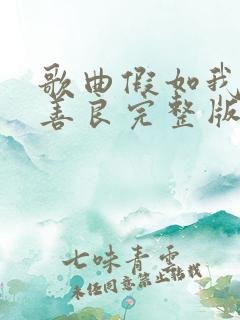 歌曲假如我
善良完整版
七味青雲
未经同意禁止转载